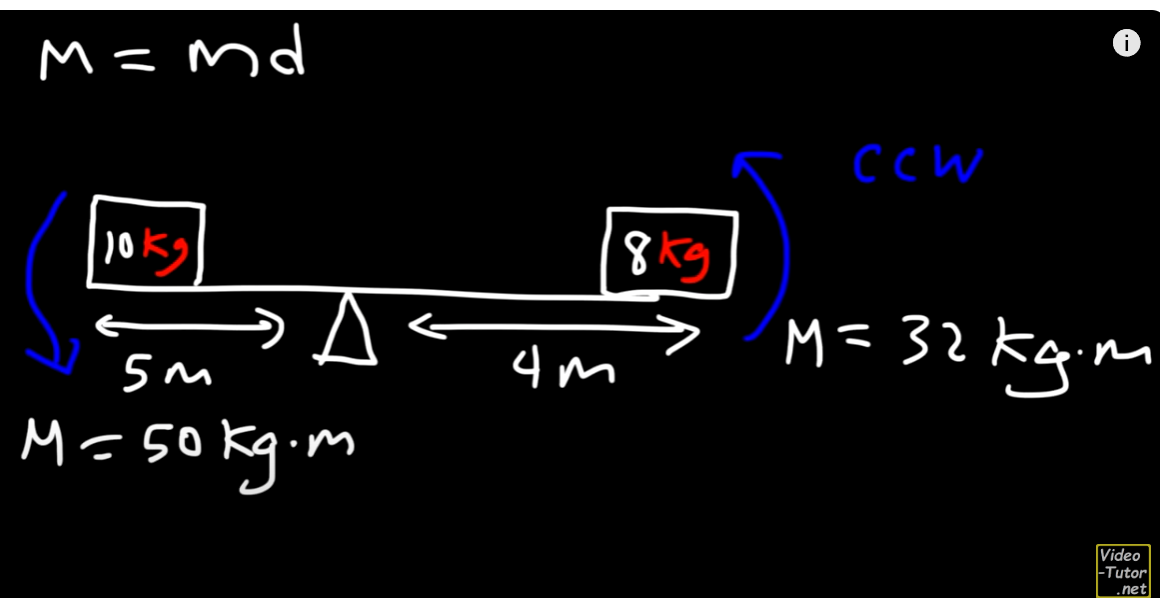 M = md
CCW
10 kg
8 kg
5 m
4 m
M = 32 kg·m
M = 50 kg·m
i
Video
-Tutor
.net